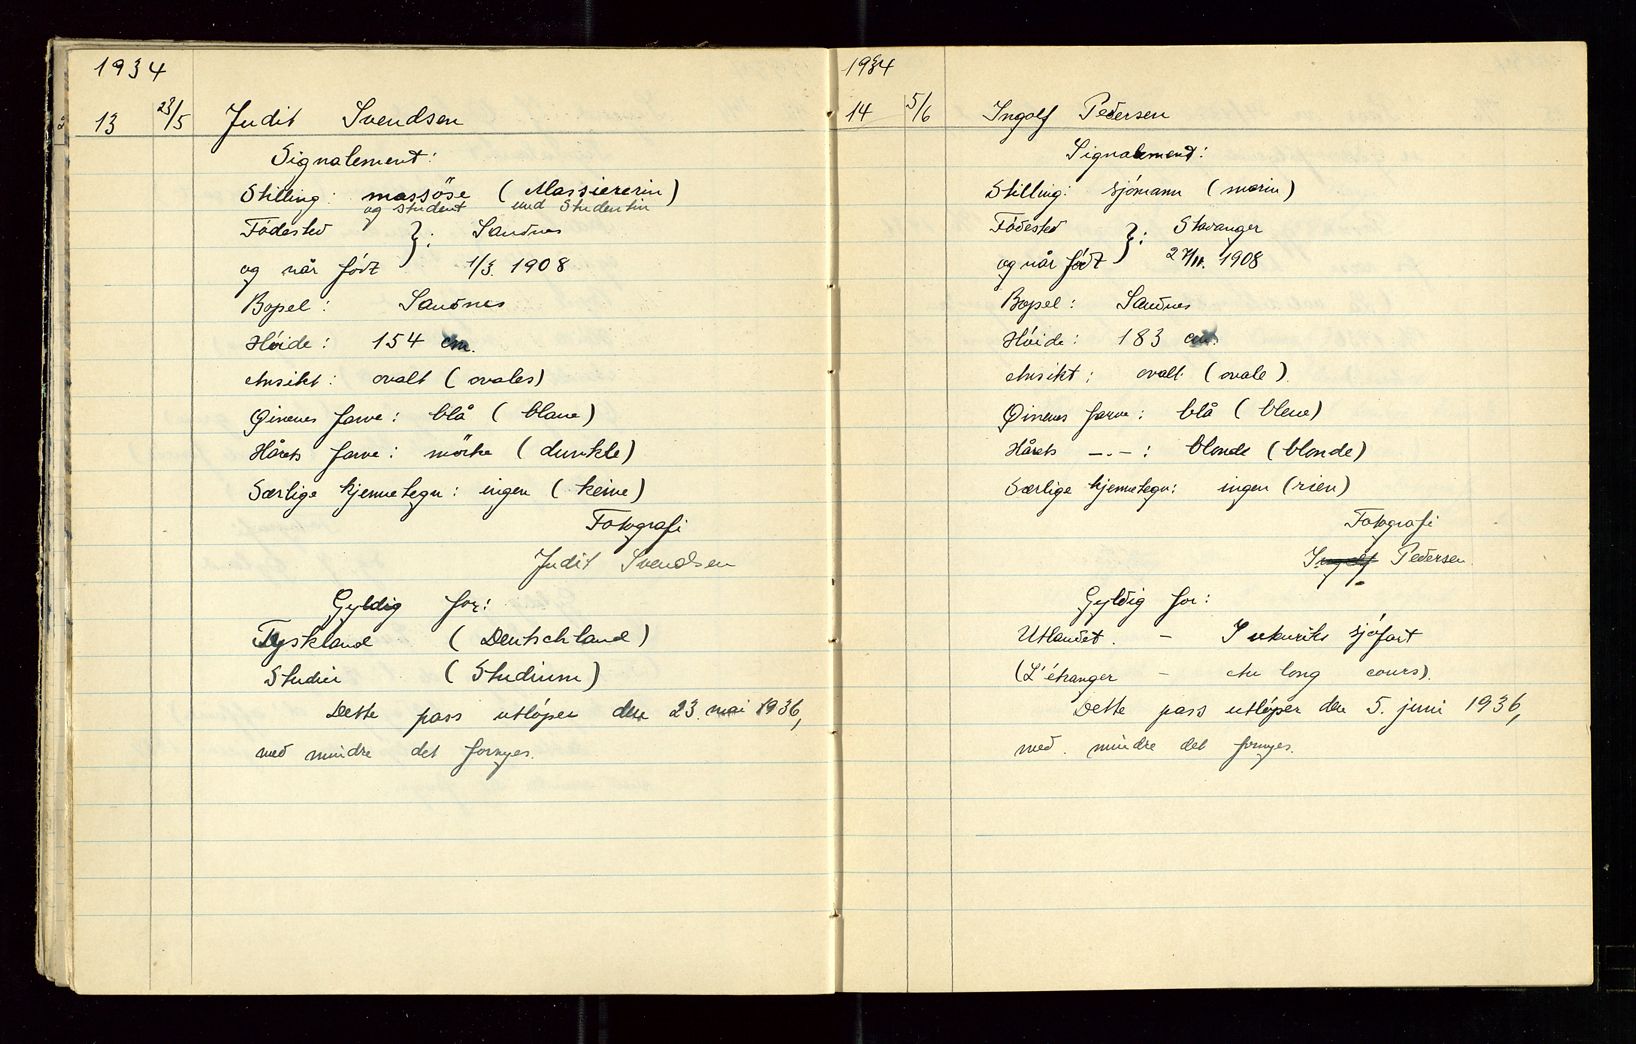 1934
13 23/5 Judit Svendsen
Signalement:
Stilling: massöse (Massiererin)
og student und Studentin
Fødested
og når født } : Sandnes
1/3. 1908
Bopel: Sandnes
Høide: 154 cm.
Ansikt: ovalt (ovales)
Øinenes farve: blå (blaue)
Hårets farve: mörke (dunkle)
Særlige kjennetegn: ingen (keine)
Fotografi
Judit Svendsen
Gyldig for:
Tyskland (Deutschland)
Studier (Studium)
Dette pass utløper den 23. mai 1936,
med mindre det fornyes.
1934
14 5/6 Ingolf Pedersen
Signalement:
Stilling: sjømann (marin)
Fødested
og når født } : Stavanger
27/11. 1908
Bopel: Sandnes
Høide: 183 cm.
Ansikt: ovalt (ovale)
Øinenes farve: blå (bleue)
Hårets -.-: blonde (blonde)
Særlige kjennetegn: ingen (rien)
Fotografi
Ingolf Pedersen
Gyldig for:
Utlandet. - I utenriks sjøfart
(L'étranger - Au long cours).
Dette pass utløper den 5. juni 1936,
med mindre det fornyes.